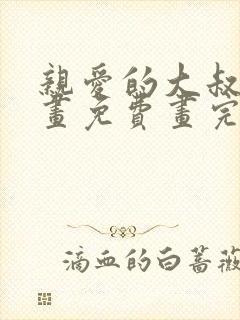 親愛的大叔
畫免費畫完
滴血的白薔薇